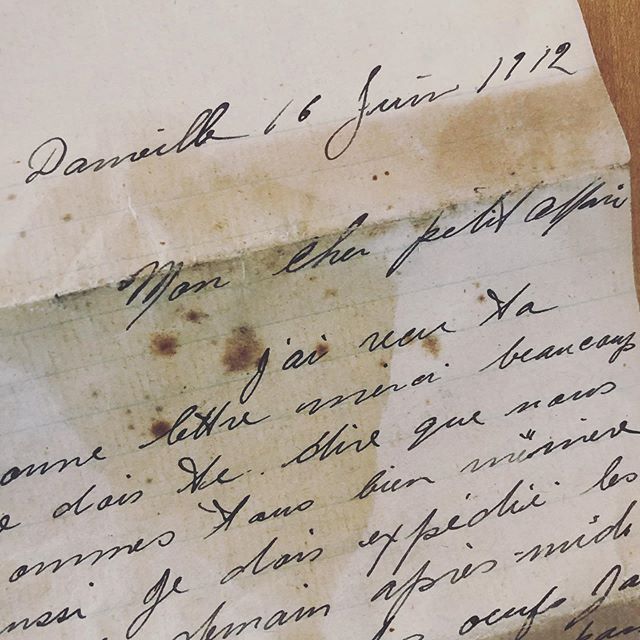 Damville 16 Juin 1912
Mon cher petit
j'ai recu ta
onne lettre merci beaucoup
e dois te dire que nous
ommes tous bien mémère
ussi Je dois expédié les
demain après-midi
oeufs